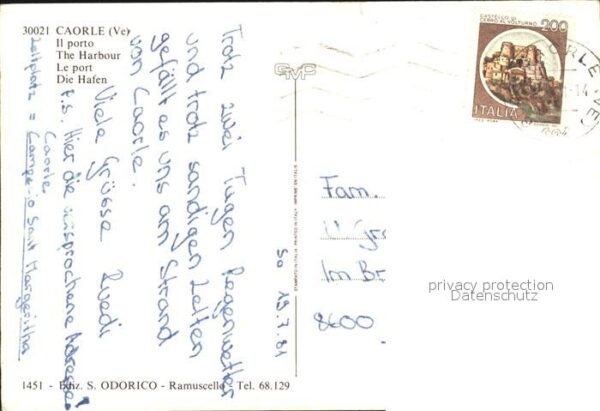 30021 CAORLE (Ve)
Il porto
The Harbour
Le port
Die Hafen
Trotz zwei Tagen Regenwetter
und trotz sandigen Zelten
gefällt es uns am Strand
von Caorle.
Viele Grüsse Ruedi
P.S. Hier die versprochene Adresse:
Caorle
Zeltplatz = Campeggio Santa Margherita
So 19.7.81
GMC
STAMPATO IN ITALIA · PRINTED IN ITALY · IMPRIMÉ EN ITALIE
CASTELLO DI
CERRO AL VOLTURNO
200
ITALIA
Fam.
Im Br
8600
privacy protection
Datenschutz
1451 - Ediz. S. ODORICO - Ramuscello - Tel. 68.129